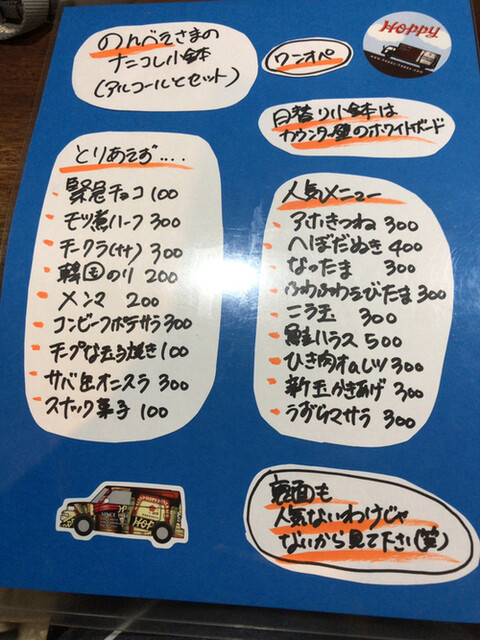 のんべえさまの
ナニコレ小鉢
(アルコールとセット)
ワンオペ
HOPPY
日替り小鉢は
カウンター壁のホワイトボード
とりあえず....
緊急チョコ 100
モツ煮ハーフ 300
チークラ(ササ) 300
韓国のり 200
メンマ 200
コンビーフポテサラ 300
チープな玉子焼き 100
サバ缶オニスラ 300
スナック菓子 100
人気メニュー
アホきつね 300
へぼだぬき 400
なったま 300
ふわふわえびたま 300
ニラ玉 300
鮭ハラス 500
ひき肉オムレツ 300
新玉かきあげ 300
うずらマサラ 300
HOPPY
裏面も
人気ないわけじゃ
ないから見て下さい(笑)